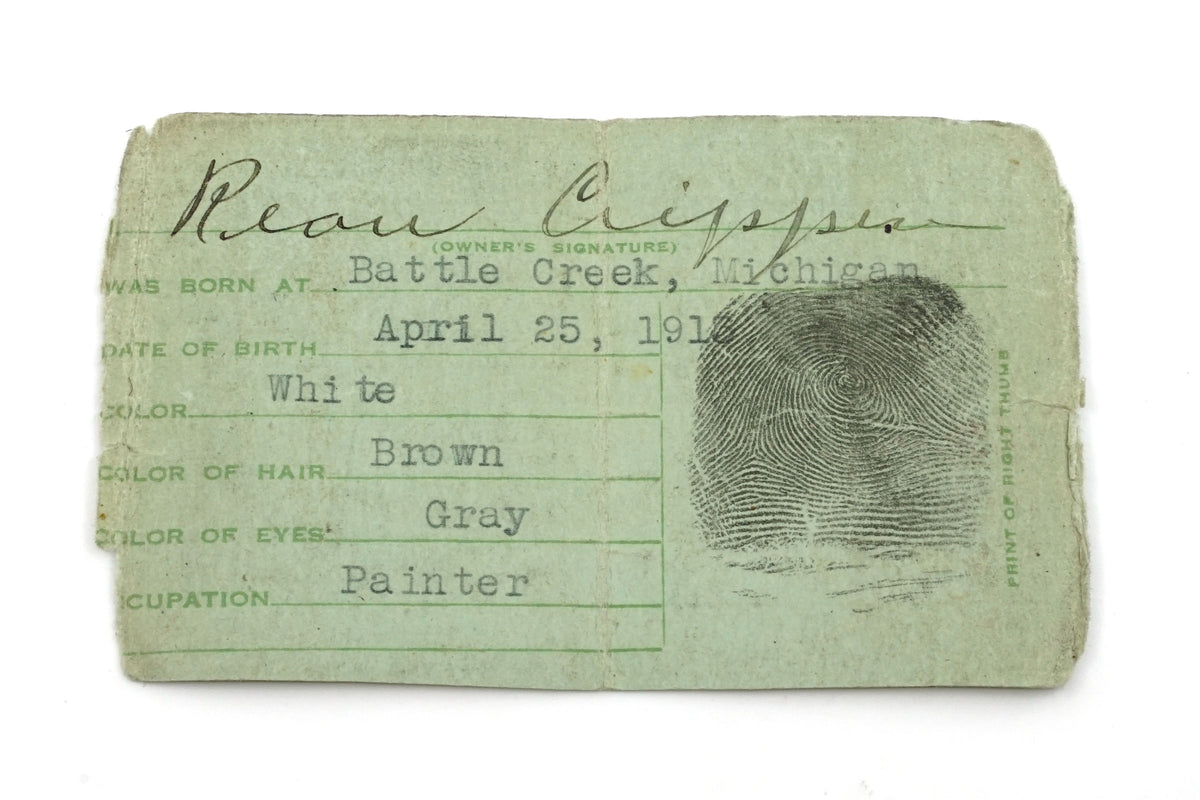 Reon Crippen
(OWNER'S SIGNATURE)
WAS BORN AT Battle Creek, Michigan
DATE OF BIRTH April 25, 1913
COLOR White
COLOR OF HAIR Brown
COLOR OF EYES Gray
CUPATION Painter
PRINT OF RIGHT THUMB